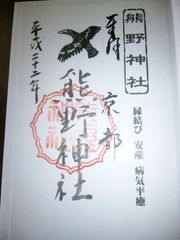 熊野神社
縁結び 安産 病気平癒
奉拝
京都
熊野神社
平成二十二年